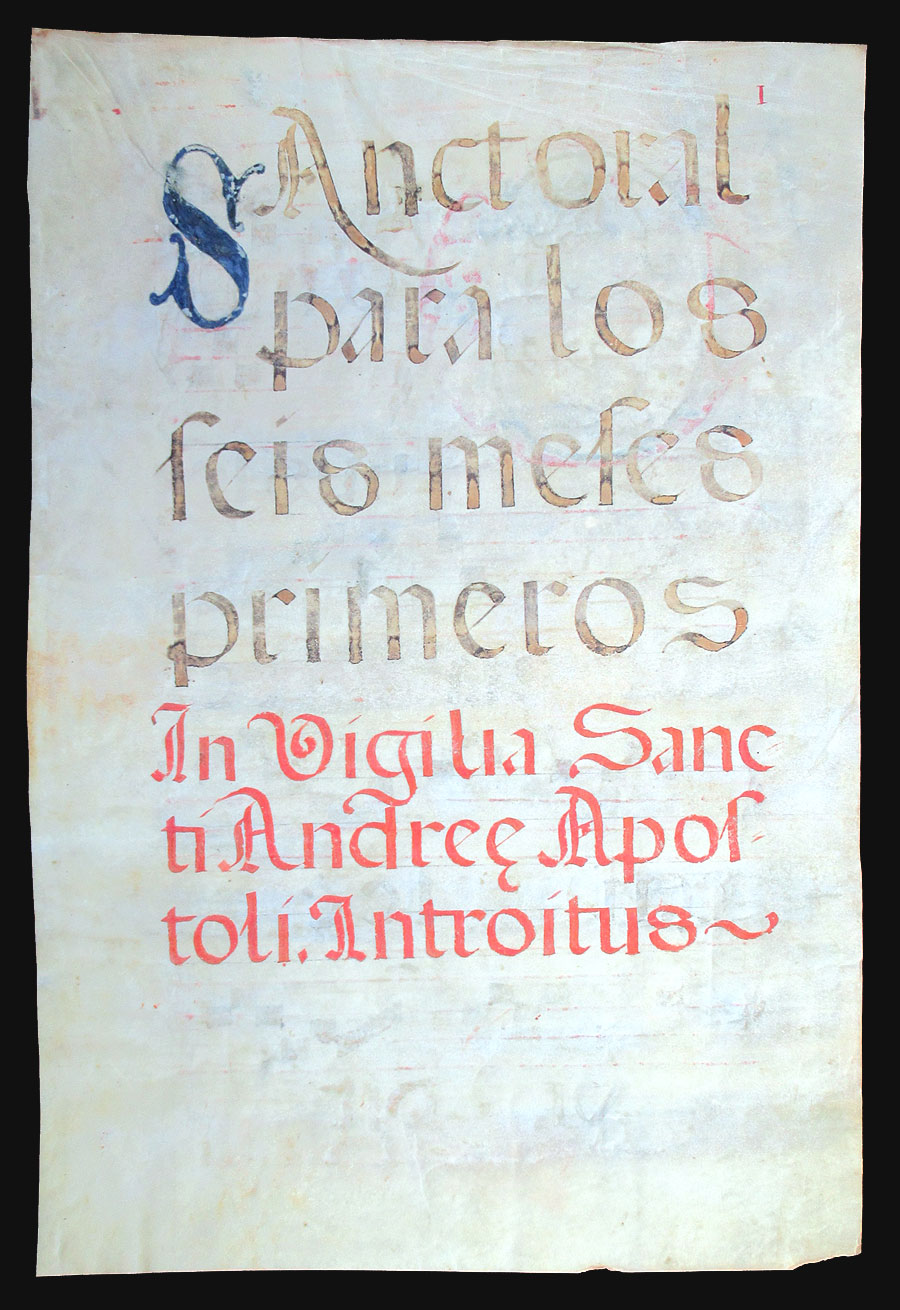 I
SAnctoral
para los
ſeis meſes
primeros
In Vigilia Sanc
ti Andreę Apoſ-
toli. Introitus~